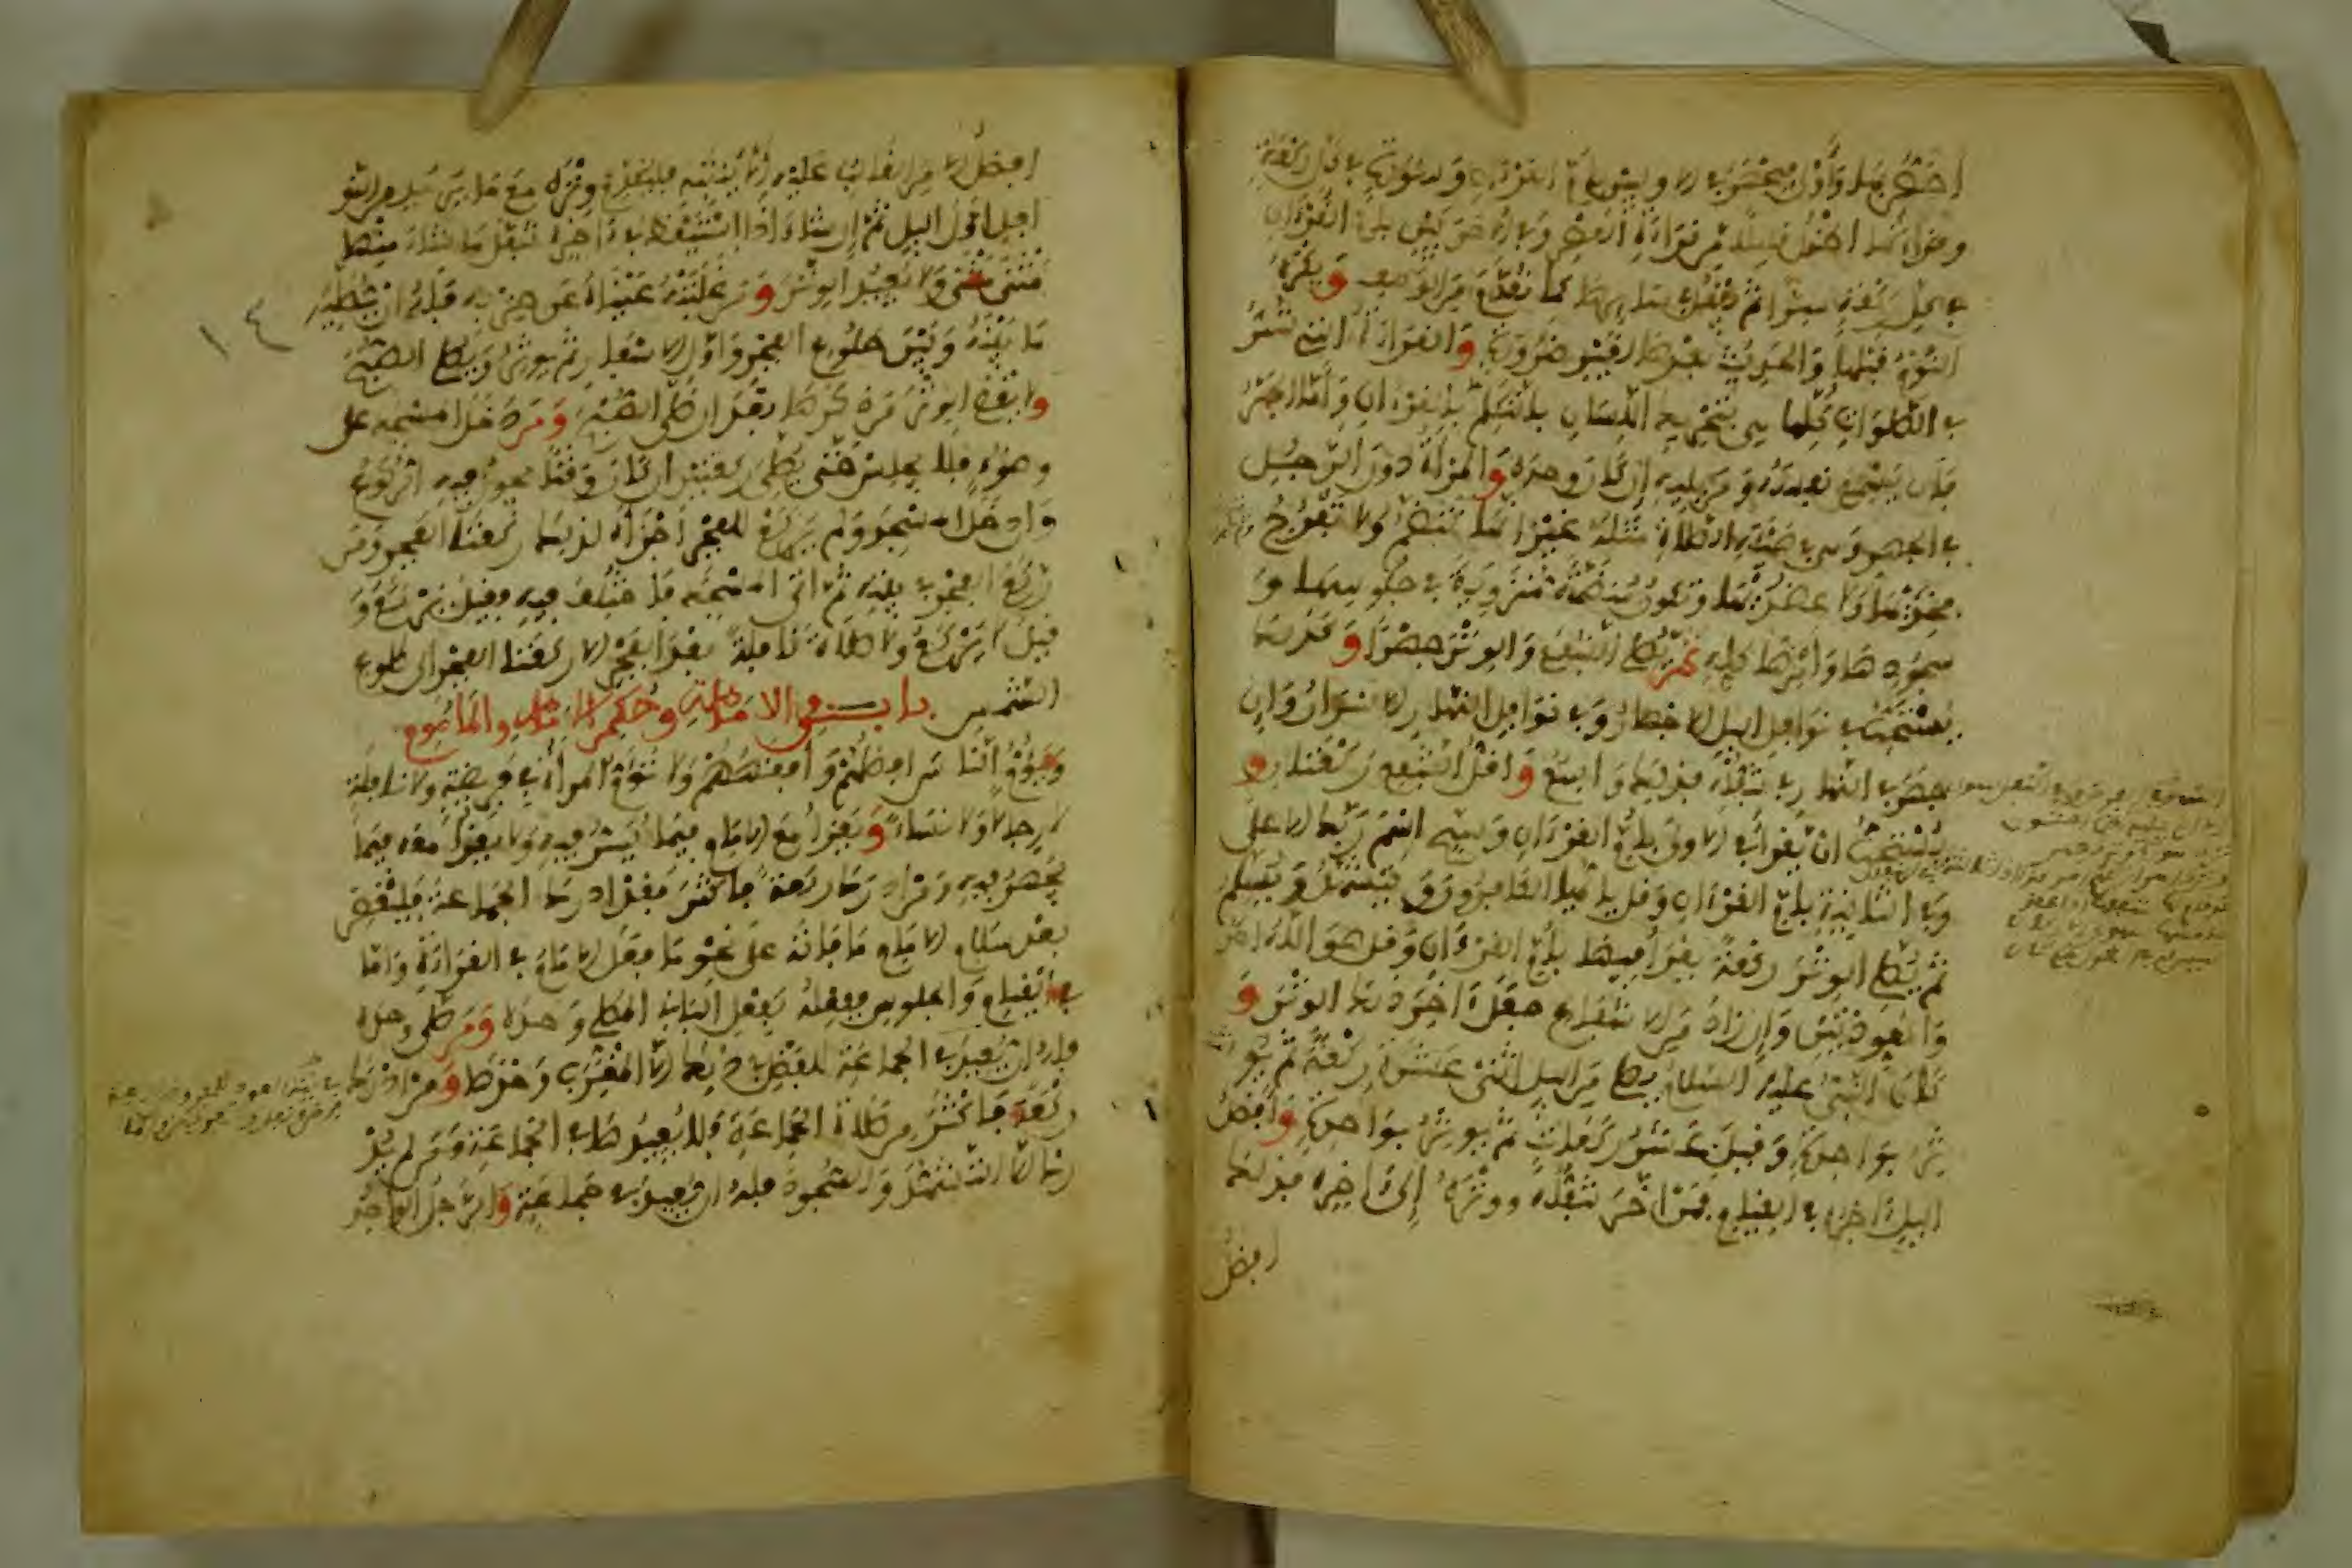 وقراءتها أطول قليلا من قراءة العصر وفي الأخيرتين بأم القرآن
في كل ركعة سرا ثم يفعل في سايرها كما تقدم من الوصف ويكره
النوم قبلها والحديث بعدها لغير ضرورة والقراءة التي تسر
في الصلوات كلها هي بتحريك اللسان بالتكلم بالقرءان وأما الجهر
فأن يسمع نفسه ومن يليه إن كان وحده والمرأة دون الرجل
في الجهر وهي في هيئة الصلاة مثله غير أنها تنضم ولا تفرج
فخذيها ولا عضديها وتكون منضمة منزوية في جلوسها و
سجودها وأمرها كله ثم يصلي الشفع والوتر جهرا وكذلك
يستحب في نوافل اليل الاجهار وفي نوافل النهار الاسرار وإن
جهر في النهار في تنفله فذلك واسع وأقل الشفع ركعتان و
يستحب أن يقرأ في الاولى بأم القرءان وسبح اسم ربك الاعلى
وفي الثانية بأم القرءان وقل يا أيها الكافرون ويتشهد ويسلم
ثم يصلي الوتر ركعة يقرأ فيها بأم القرءان وقل هو الله احد
والمعوذتين وإن زاد من الاشفاع جعل ءاخر ذلك الوتر و
كان النبي عليه السلام يصلي من اليل اثنتي عشرة ركعة ثم يو
تر بواحدة وقيل عشر ركعات ثم يوتر بواحدة وأفضل
اليل ءاخره في القيام فمن أخر تنفله ووتره إلى ءاخره فذلك
افضل
افضل الا من الغالب عليه ألا ينتبه فليقدم وتره مع ما يريد من النو
افل اول اليل ثم إن شاء إذا استيقظ في ءاخره تنفل ما شاء منها
مثنى مثنى ولا يعيد الوتر ومن غلبته عيناه عن حزبه فله أن يصليه
ما بينه وبين طلوع الفجر وأول الاسفار ثم يوتر ويصلي الصبح
ولا يقضي الوتر من ذكره بعد ان صلى الصبح ومن دخل المسجد على
وضوء فلا يجلس حتى يصلي ركعتين ان كان وقتا يجوز فيه الركوع
ومن دخل المسجد ولم يركع الفجر أجزأه لذلك ركعتا الفجر ومن
ركع الفجر في بيته ثم اتى المسجد فاختلف فيه فقيل يركع و
قيل لا يركع ولا صلاة نافلة بعد الفجر الا ركعتا الفجر الى طلوع
الشمس باب في الامامة وحكم الامام والماموم
ويؤم الناس افضلهم وأفقههم ولا تؤم المرأة في فريضة ولا نافلة
لا رجالا ولا نساء ويقرأ مع الامام فيما يسر فيه ولا يقرأ معه فيما
يجهر فيه ومن ادرك ركعة فأكثر فقد ادرك الجماعة فليقض
بعد سلام الامام ما فاته على نحو ما فعل الامام في القراءة وأما
في القيام والجلوس ففعله كفعل الباني المصلي وحده ومن صلى وحده
فله ان يعيد في الجماعة للفضل في ذلك الا المغرب وحدها ومن ادرك
ركعة فأكثر من صلاة الجماعة فلا يعيدها في الجماعة ومن لم يد
رك الا التشهد والسجود فله ان يعيد في جماعة والرجل الواحد
١٤